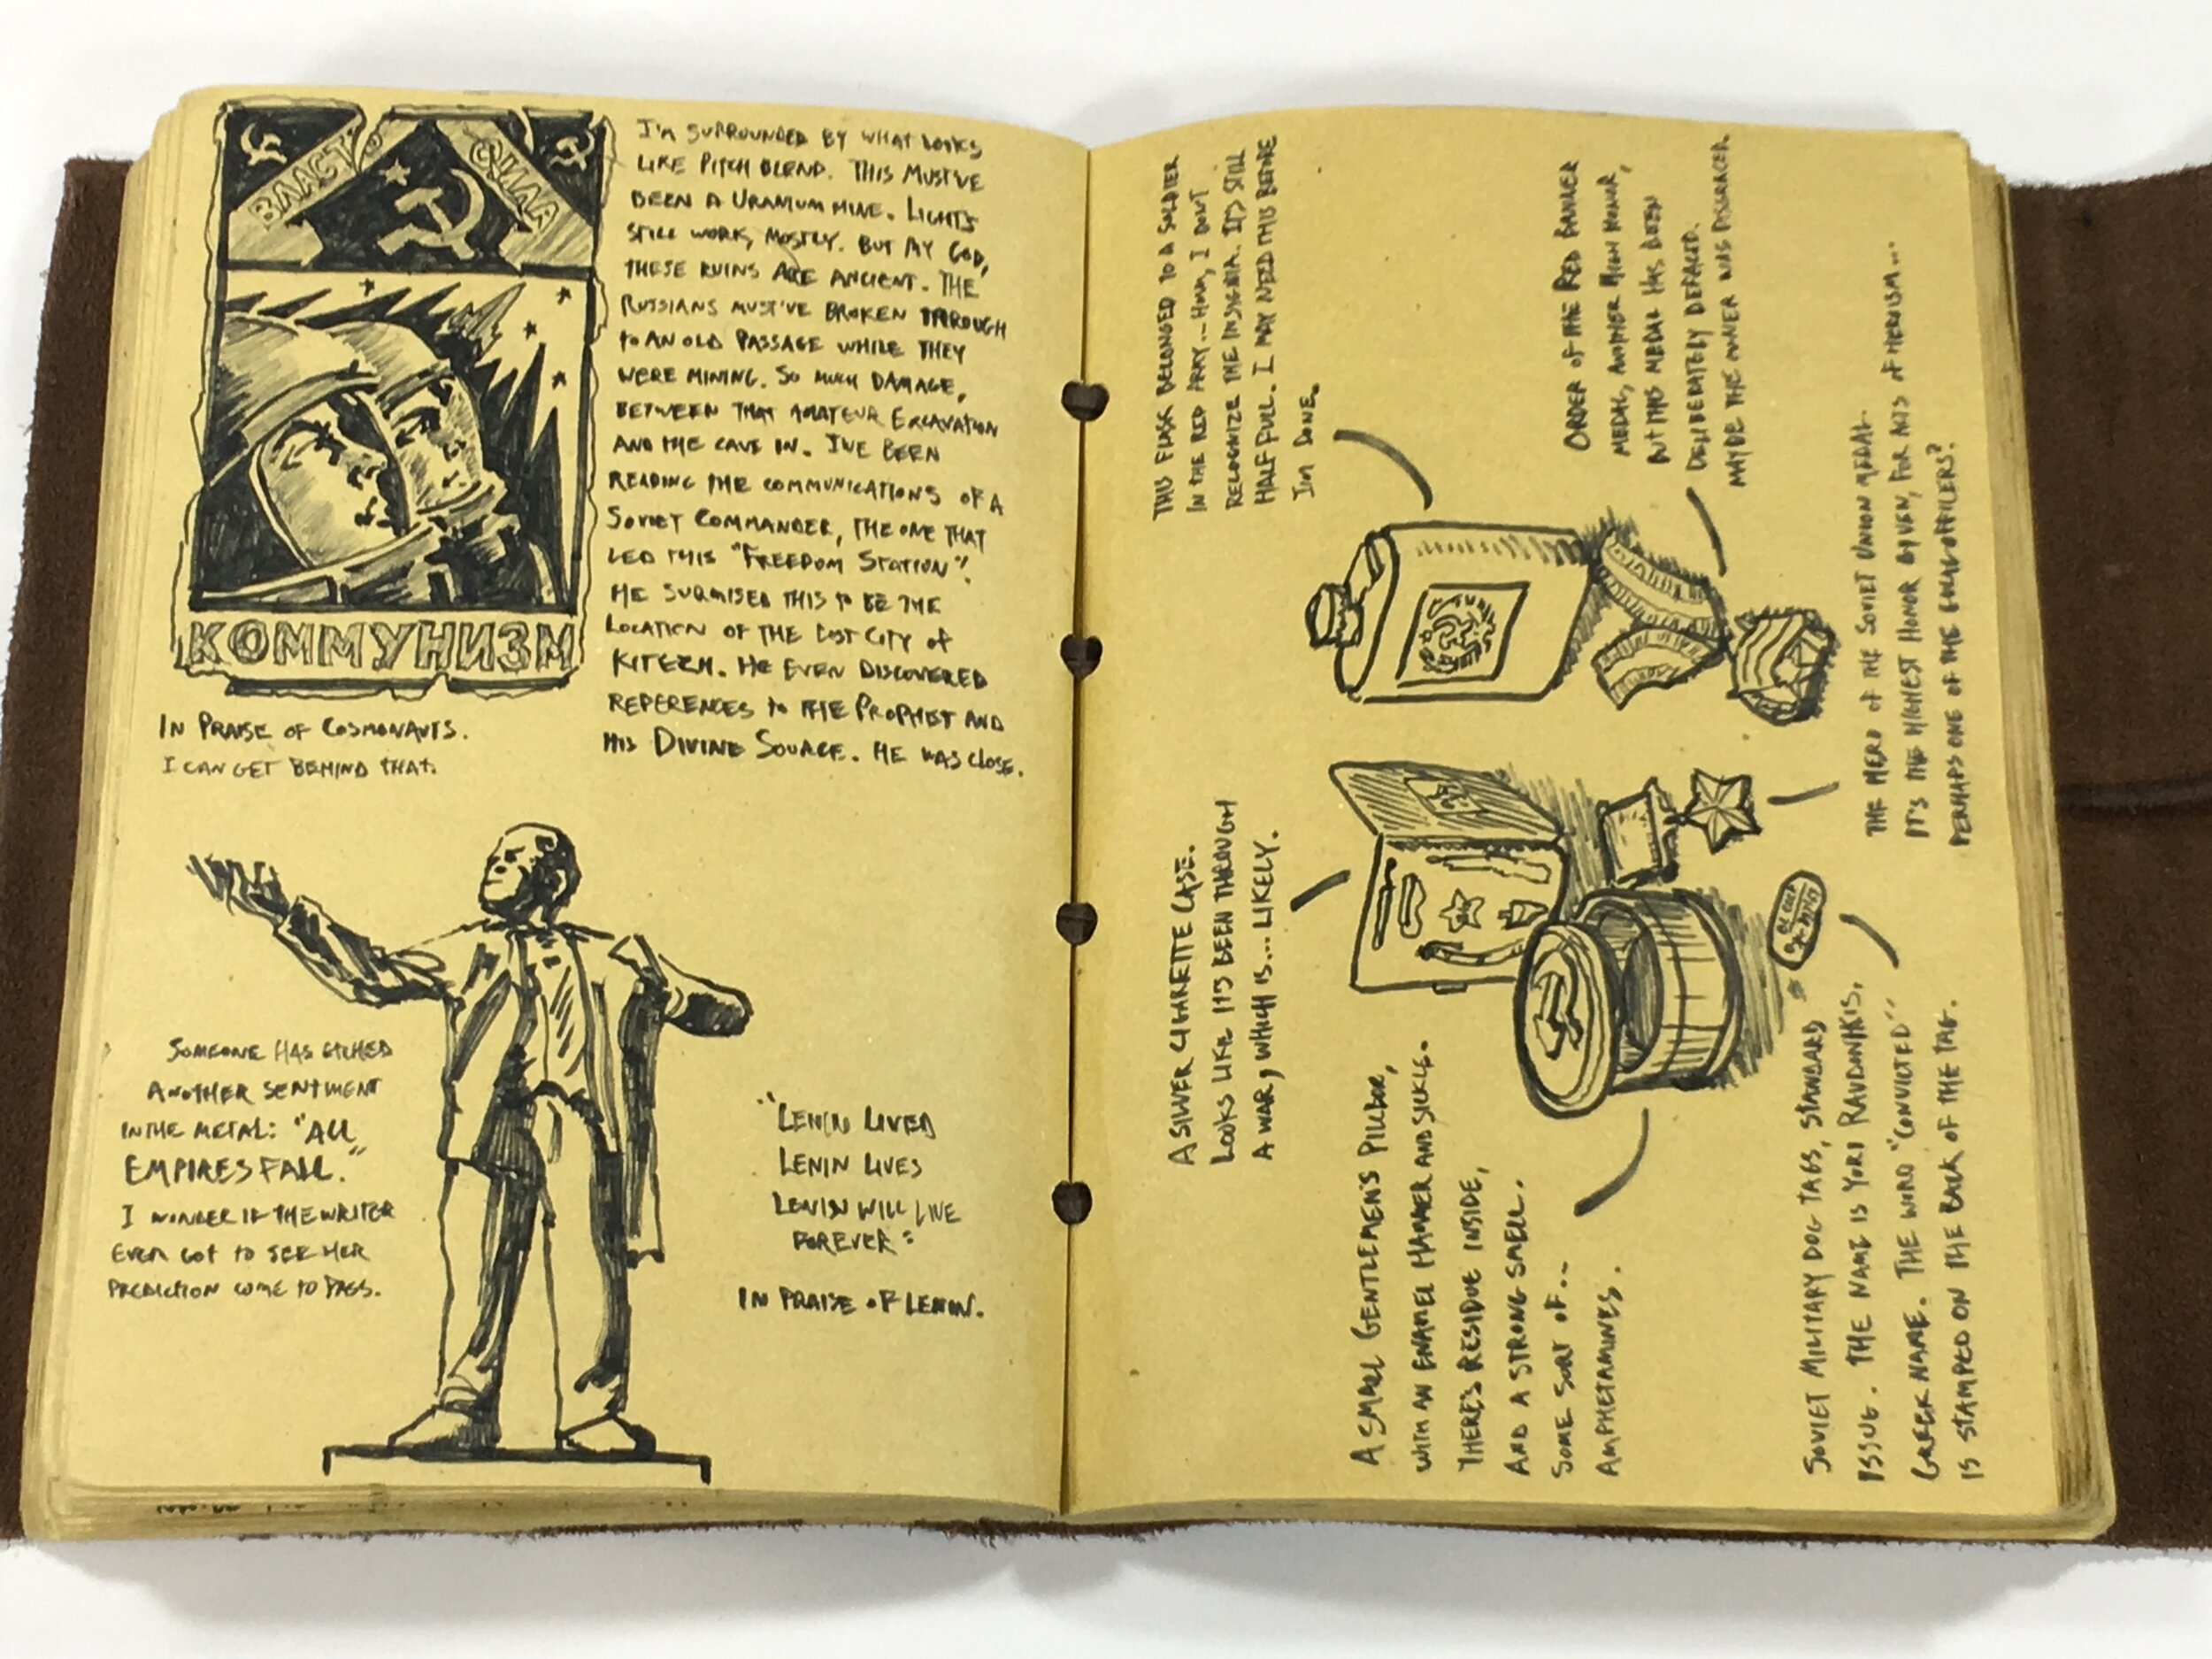 ВЛАСТЬ
КОММУНИЗМ
IN PRAISE OF COSMONAUTS.
I CAN GET BEHIND THAT.
I'M SURROUNDED BY WHAT LOOKS
LIKE PITCH BLEND. THIS MUST'VE
BEEN A URANIUM MINE. LIGHTS
STILL WORK, MOSTLY. BUT MY GOD,
THESE RUINS ARE ANCIENT. THE
RUSSIANS MUST'VE BROKEN THROUGH
TO AN OLD PASSAGE WHILE THEY
WERE MINING. SO MUCH DAMAGE,
BETWEEN THAT AMATEUR EXCAVATION
AND THE CAVE IN. I'VE BEEN
READING THE COMMUNICATIONS OF A
SOVIET COMMANDER, THE ONE THAT
LED THIS "FREEDOM STATION".
HE SURMISED THIS TO BE THE
LOCATION OF THE LOST CITY OF
KITEZH. HE EVEN DISCOVERED
REFERENCES TO THE PROPHET AND
HIS DIVINE SOURCE. HE WAS CLOSE.
SOMEONE HAS ETCHED
ANOTHER SENTIMENT
IN THE METAL: "ALL
EMPIRES FALL."
I WONDER IF THE WRITER
EVER GOT TO SEE HER
PREDICTION COME TO PASS.
"LENIN LIVED
LENIN LIVES
LENIN WILL LIVE
FOREVER"
IN PRAISE OF LENIN.
THIS FLASK BELONGED TO A SOLDIER
IN THE RED ARMY... HMM, I DON'T
RECOGNIZE THE INSIGNIA. ITS STILL
HALF FULL. I MAY NEED THIS BEFORE
I'M DONE.
ORDER OF THE RED BANNER
MEDAL, ANOTHER HIGH HONOR,
BUT THIS MEDAL HAS BEEN
DELIBERATELY DEFACED.
MAYBE THE OWNER WAS DISGRACED.
THE HERO OF THE SOVIET UNION MEDAL.
IT'S THE HIGHEST HONOR GIVEN, FOR ACTS OF HEROISM...
PERHAPS ONE OF THE GULAG OFFICERS?
A SILVER CIGARETTE CASE.
LOOKS LIKE ITS BEEN THROUGH
A WAR, WHICH IS... LIKELY.
A SMALL GENTLEMEN'S PILLBOX,
WITH AN ENAMEL HAMMER AND SICKLE.
THERE'S RESIDUE INSIDE,
AND A STRONG SMELL.
SOME SORT OF...
AMPHETAMINES.
SOVIET MILITARY DOG TAGS, STANDARD
ISSUE. THE NAME IS YORI RAVDONIKIS,
GREEK NAME. THE WORD "CONVICTED"
IS STAMPED ON THE BACK OF THE TAG.